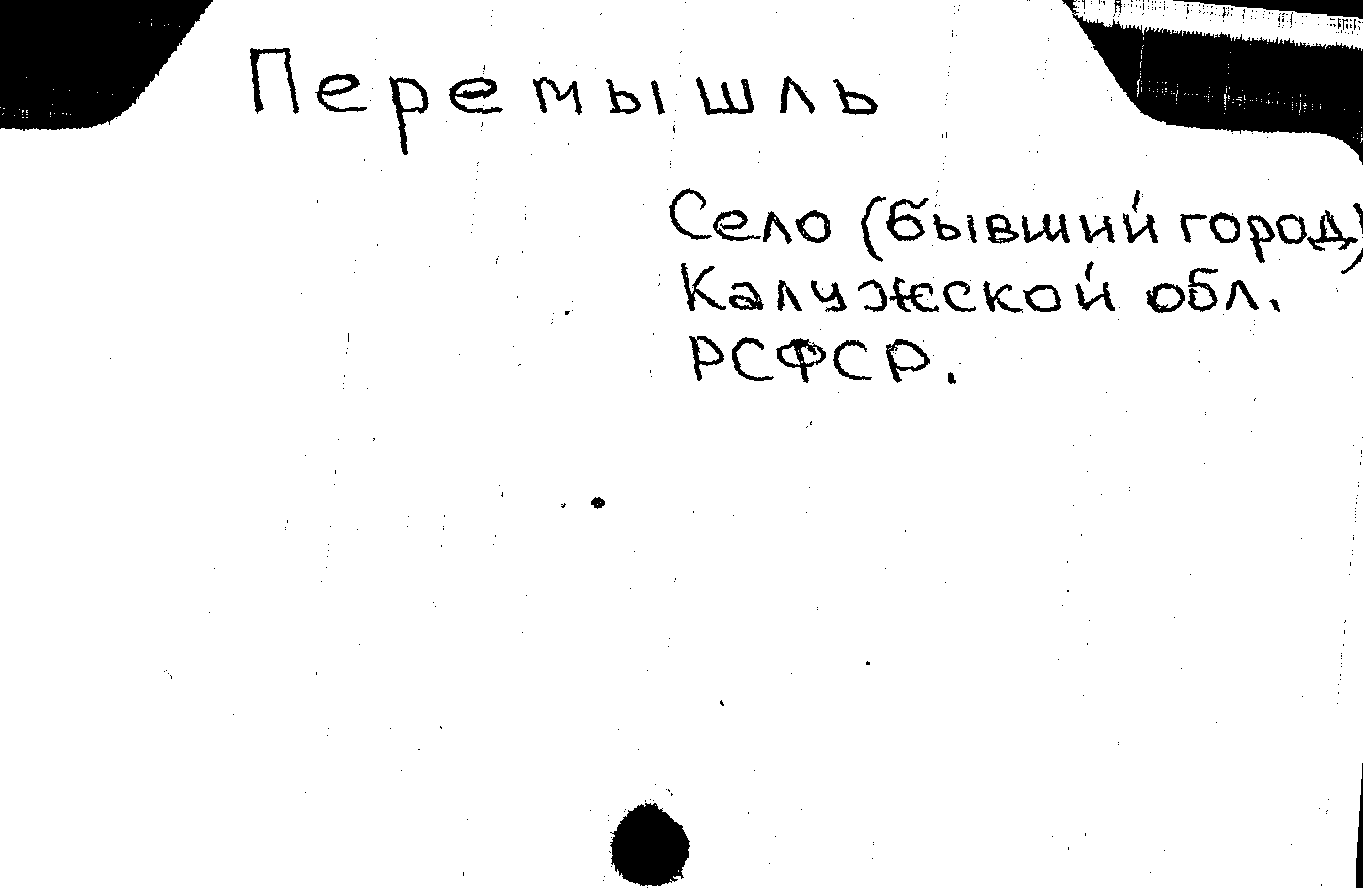 Перемышль
Село (бывший город)
Калужской обл.
РСФСР.